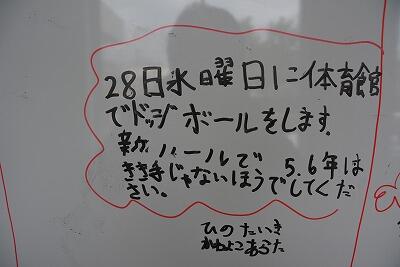 28日水曜日に体育館
でドッジボールをします。
新ルールで 5.6年は
きき手じゃないほうでしてくだ
さい。
ひの たいき
かねよこ あらた